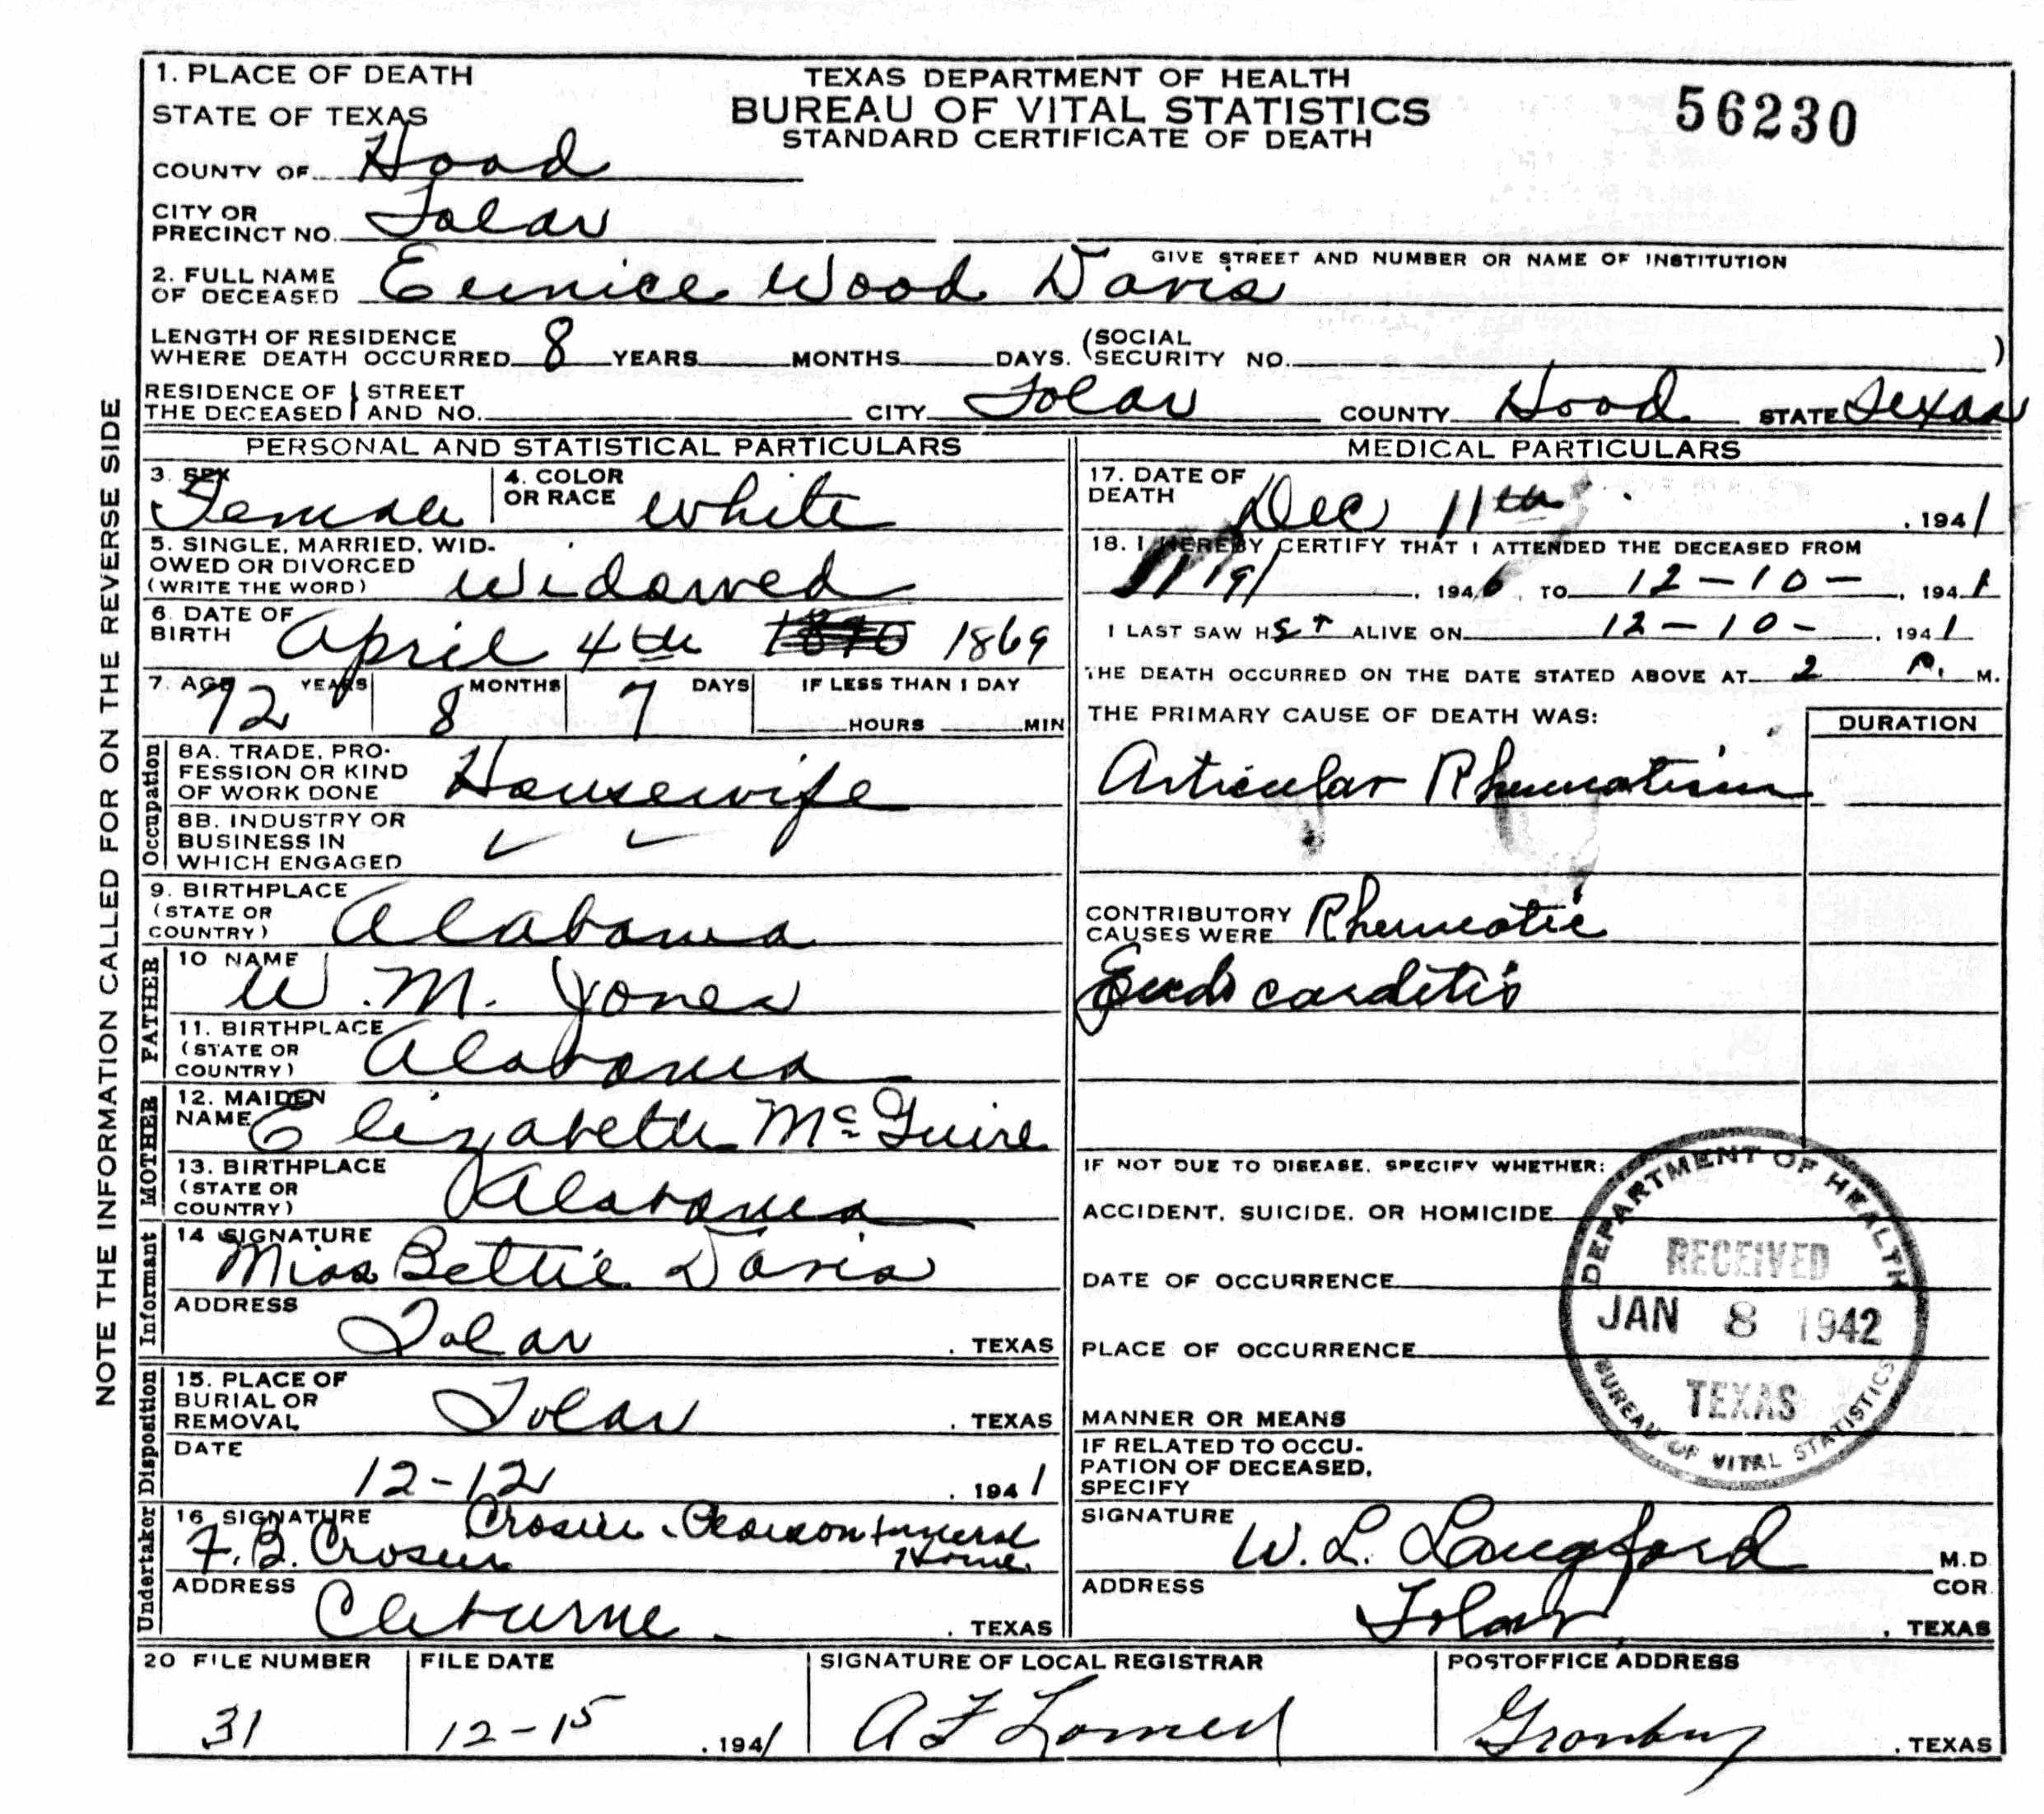 1. PLACE OF DEATH
STATE OF TEXAS
TEXAS DEPARTMENT OF HEALTH
BUREAU OF VITAL STATISTICS
STANDARD CERTIFICATE OF DEATH
56230
COUNTY OF Hood
CITY OR PRECINCT NO. Tolar
GIVE STREET AND NUMBER OR NAME OF INSTITUTION
2. FULL NAME OF DECEASED Eunice Wood Davis
LENGTH OF RESIDENCE WHERE DEATH OCCURRED 8 YEARS MONTHS DAYS. (SOCIAL SECURITY NO. )
RESIDENCE OF THE DECEASED } STREET AND NO. CITY Tolar COUNTY Hood STATE Texas
NOTE THE INFORMATION CALLED FOR ON THE REVERSE SIDE
PERSONAL AND STATISTICAL PARTICULARS
3. SEX Female 4. COLOR OR RACE White
5. SINGLE, MARRIED, WIDOWED OR DIVORCED (WRITE THE WORD) Widowed
6. DATE OF BIRTH April 4th 1869
7. AGE 72 YEARS 8 MONTHS 7 DAYS IF LESS THAN 1 DAY HOURS MIN
Occupation
8A. TRADE, PROFESSION OR KIND OF WORK DONE Housewife
8B. INDUSTRY OR BUSINESS IN WHICH ENGAGED
9. BIRTHPLACE (STATE OR COUNTRY) Alabama
FATHER
10 NAME W. M. Jones
11. BIRTHPLACE (STATE OR COUNTRY) Alabama
MOTHER
12. MAIDEN NAME Elizabeth McGuire
13. BIRTHPLACE (STATE OR COUNTRY) Alabama
Informant
14 SIGNATURE Miss Bettie Davis
ADDRESS Tolar, TEXAS
Disposition
15. PLACE OF BURIAL OR REMOVAL Tolar, TEXAS
DATE 12-12, 1941
Undertaker
16 SIGNATURE F. B. Crosier Crosier-Pearson Funeral Home.
ADDRESS Cleburne, TEXAS
MEDICAL PARTICULARS
17. DATE OF DEATH Dec 11th, 1941
18. I HEREBY CERTIFY THAT I ATTENDED THE DECEASED FROM
, 194 TO 12-10-, 1941
I LAST SAW Her ALIVE ON 12-10-, 1941
THE DEATH OCCURRED ON THE DATE STATED ABOVE AT 2 M.
THE PRIMARY CAUSE OF DEATH WAS:
DURATION
Articular Rheumatism
CONTRIBUTORY CAUSES WERE Rheumatic
Endocarditis
IF NOT DUE TO DISEASE, SPECIFY WHETHER:
ACCIDENT, SUICIDE, OR HOMICIDE
DATE OF OCCURRENCE
PLACE OF OCCURRENCE
MANNER OR MEANS
IF RELATED TO OCCUPATION OF DECEASED, SPECIFY
DEPARTMENT OF HEALTH
RECEIVED
JAN 8 1942
TEXAS
BUREAU OF VITAL STATISTICS
SIGNATURE W. L. Langford M.D. COR.
ADDRESS Tolar, TEXAS
20 FILE NUMBER 31
FILE DATE 12-15, 1941
SIGNATURE OF LOCAL REGISTRAR A F
POSTOFFICE ADDRESS Granbury, TEXAS